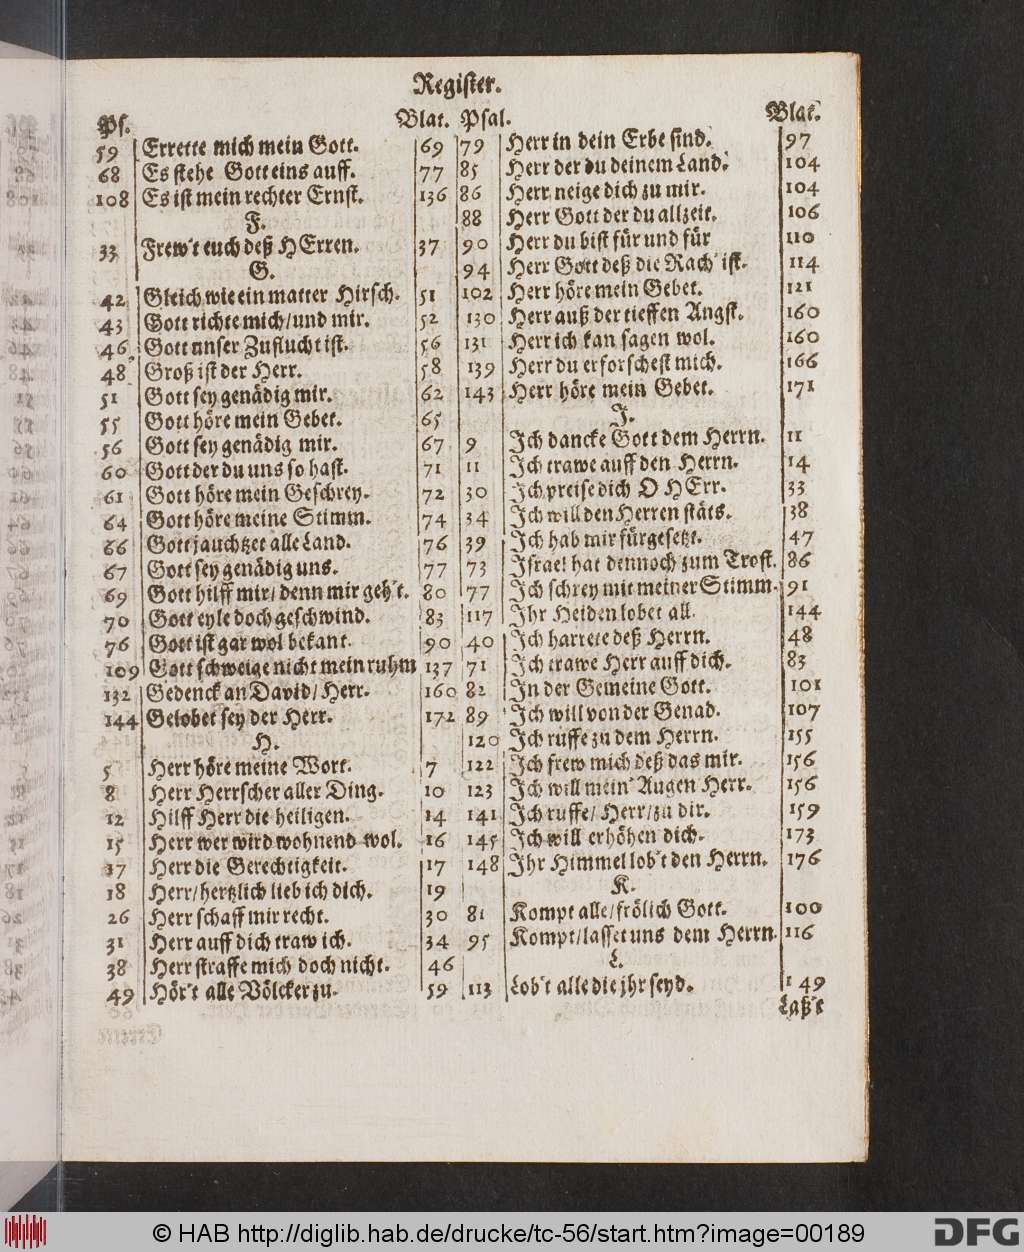 Register.
Ps. Blat.
59 Errette mich mein Gott. 69
68 Es stehe Gott eins auff. 77
108 Es ist mein rechter Ernst. 136
F.
33 Frew't euch deß HErren. 37
G.
42 Gleich wie ein matter Hirsch. 51
43 Gott richte mich/und mir. 52
46 Gott unser Zuflucht ist. 56
48 Groß ist der Herr. 58
51 Gott sey genädig mir. 62
55 Gott höre mein Gebet. 65
56 Gott sey genädig mir. 67
60 Gott der du uns so hast. 71
61 Gott höre mein Geschrey. 72
64 Gott höre meine Stimm. 74
66 Gott jauchtzet alle Land. 76
67 Gott sey genädig uns. 77
69 Gott hilff mir/ denn mir geh't. 80
70 Gott eyle doch geschwind. 83
76 Gott ist gar wol bekant. 90
109 Gott schweige nicht mein ruhm 137
132 Gedenck an David/ Herr. 160
144 Gelobet sey der Herr. 172
H.
5 Herr höre meine Wort. 7
8 Herr Herrscher aller Ding. 10
12 Hilff Herr die heiligen. 14
15 Herr wer wird wohnend wol. 16
17 Herr die Gerechtigkeit. 17
18 Herr/hertzlich lieb ich dich. 19
26 Herr schaff mir recht. 30
31 Herr auff dich traw ich. 34
38 Herr straffe mich doch nicht. 46
49 Hör't alle Völcker zu. 59
Psal. Blat.
79 Herr in dein Erbe sind. 97
85 Herr der du deinem Land. 104
86 Herr neige dich zu mir. 104
88 Herr Gott der du allzeit. 106
90 Herr du bist für und für 110
94 Herr Gott deß die Rach' ist. 114
102 Herr höre mein Gebet. 121
130 Herr auß der tieffen Angst. 160
131 Herr ich kan sagen wol. 160
139 Herr du erforschest mich. 166
143 Herr höre mein Gebet. 171
J.
9 Ich dancke Gott dem Herrn. 11
11 Ich trawe auff den Herrn. 14
30 Ich preise dich O HErr. 33
34 Ich will den Herren stäts. 38
39 Ich hab mir fürgesetzt. 47
73 Israel hat dennoch zum Trost. 86
77 Ich schrey mit meiner Stimm. 91
117 Ihr Heiden lobet all. 144
40 Ich harrete deß Herrn. 48
71 Ich trawe Herr auff dich. 83
82 In der Gemeine Gott. 101
89 Ich will von der Genad. 107
120 Ich ruffe zu dem Herrn. 155
122 Ich frew mich deß das mir. 156
123 Ich will mein' Augen Herr. 156
141 Ich ruffe/ Herr/zu dir. 159
145 Ich will erhöhen dich. 173
148 Ihr Himmel lob't den Herrn. 176
K.
81 Kompt alle/frölich Gott. 100
95 Kompt/lasset uns dem Herrn. 116
L.
113 Lob't alle die jhr seyd. 149
Laß't
© HAB http://diglib.hab.de/drucke/tc-56/start.htm?image=00189
DFG